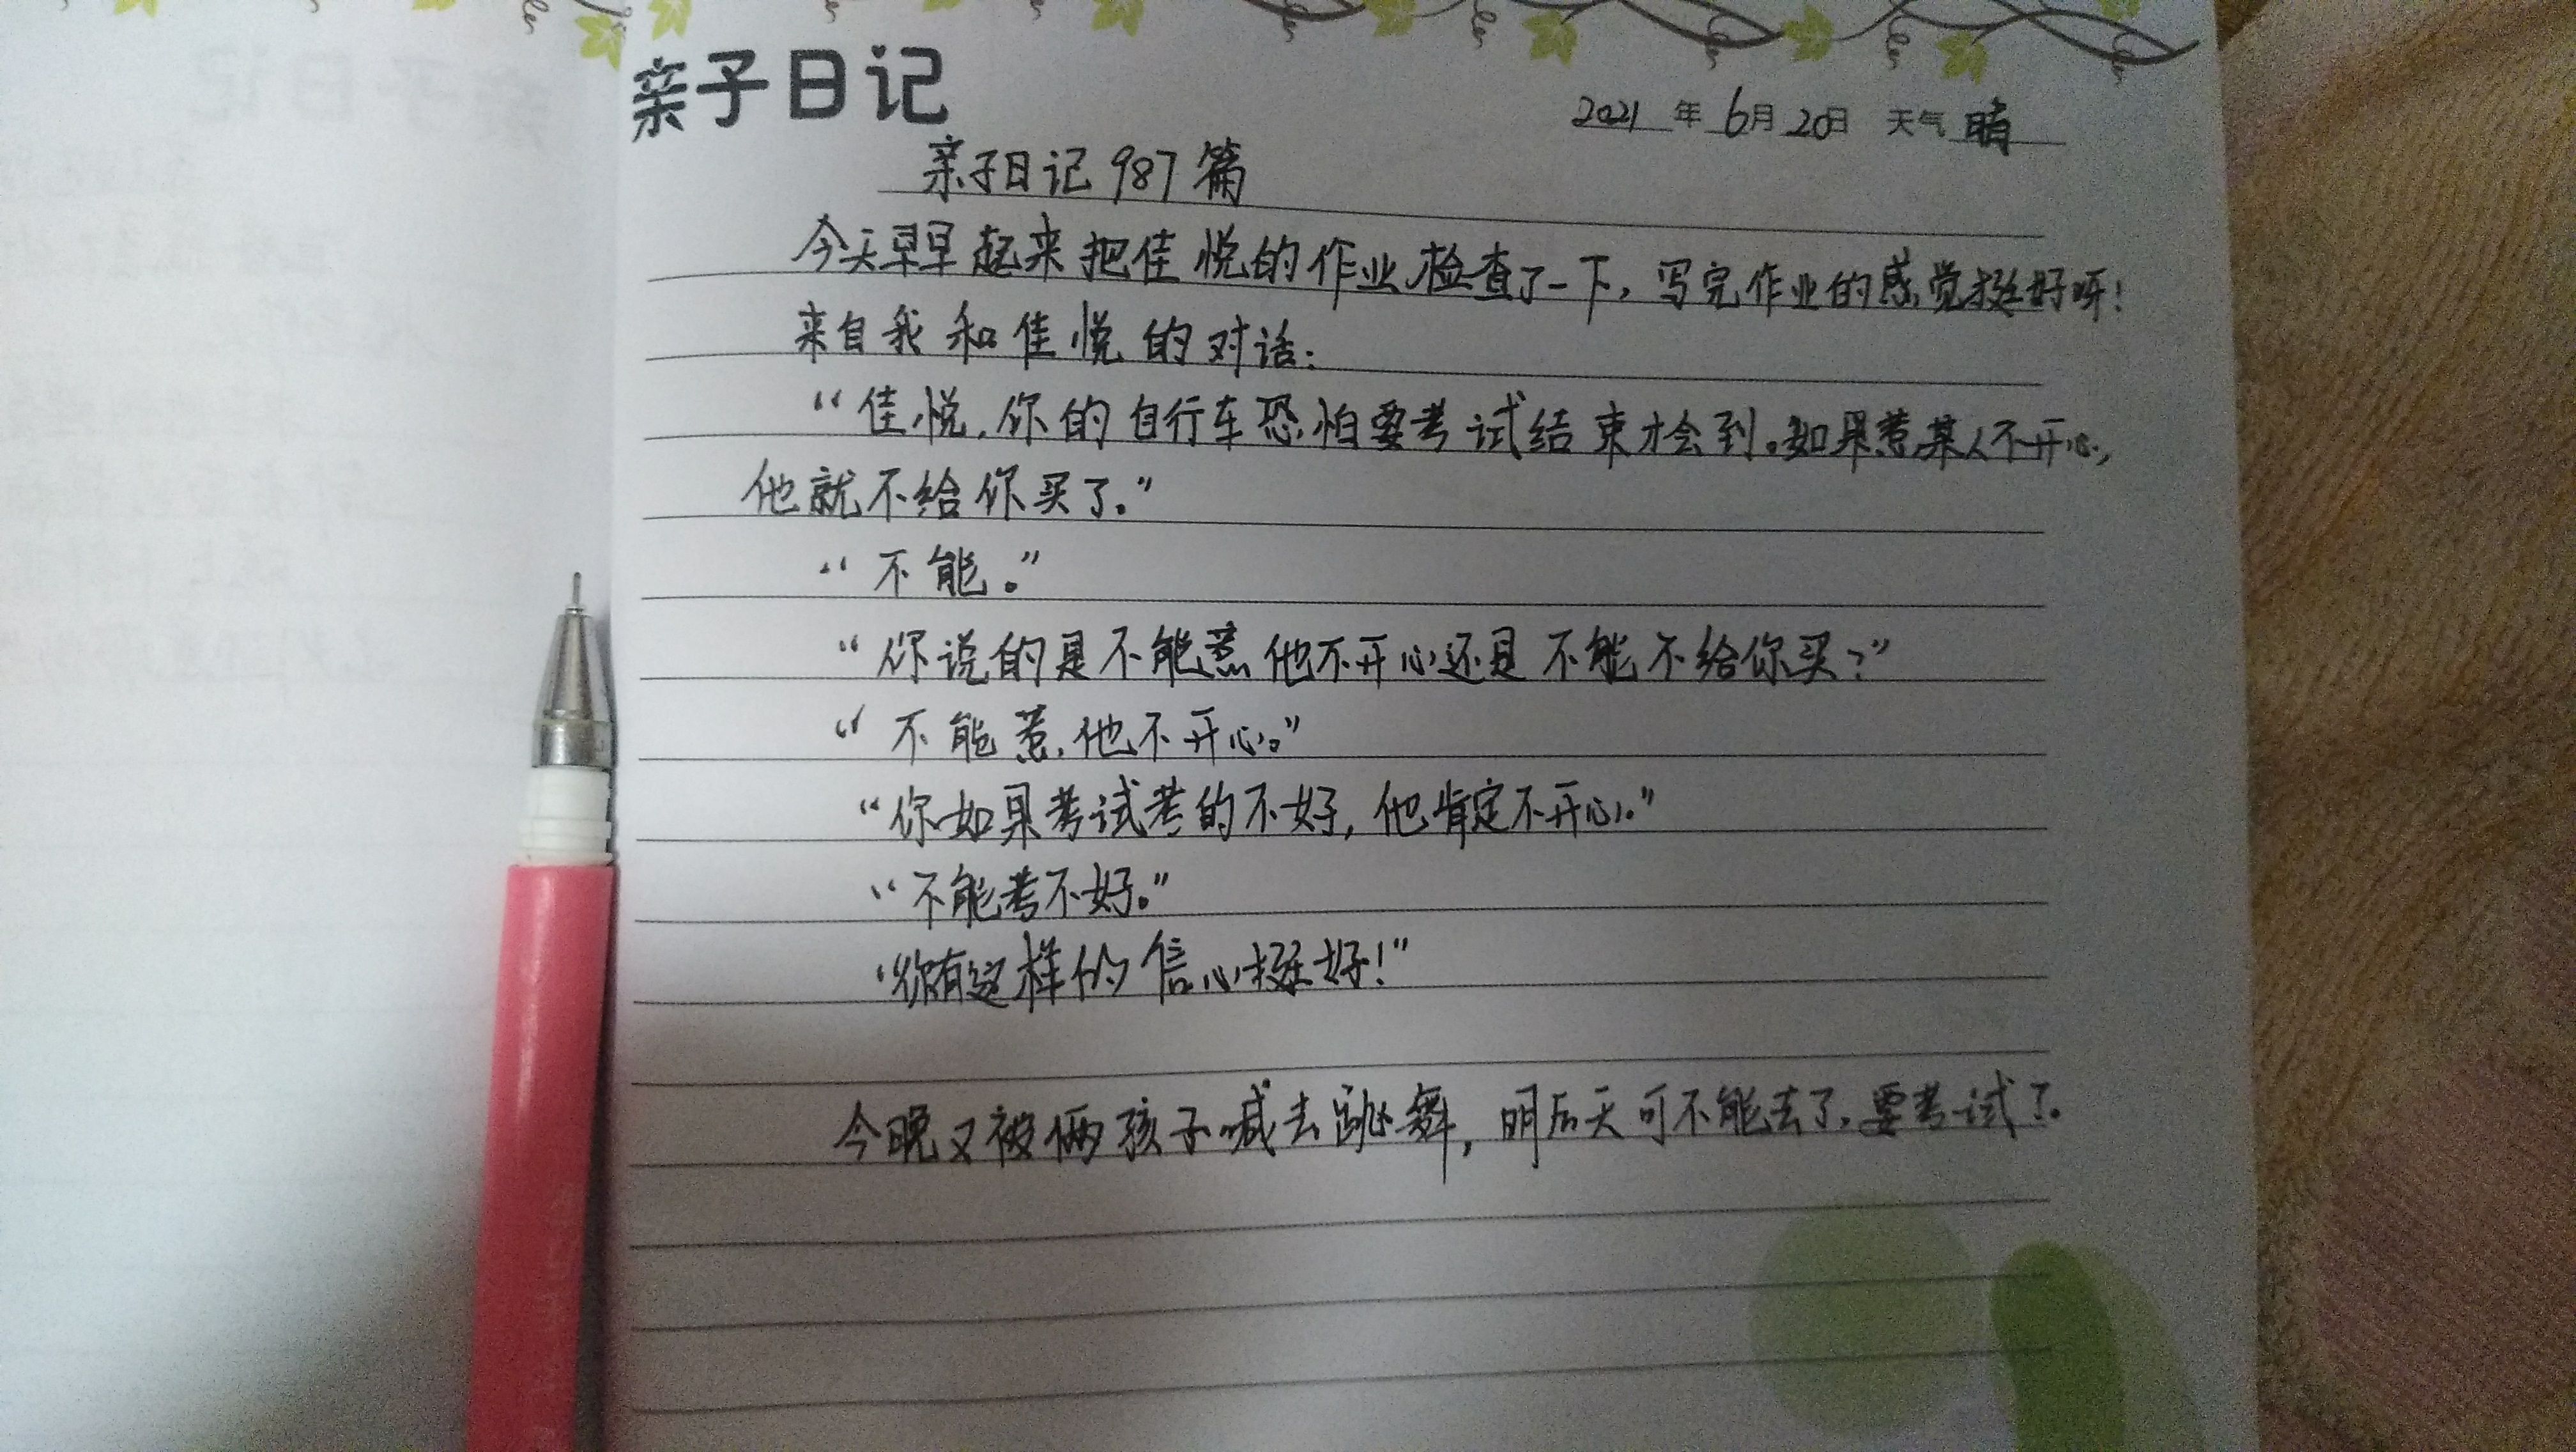 亲子日记
2021年6月20日 天气 晴
亲子日记987篇
今天早早起来把佳悦的作业检查了一下，写完作业的感觉挺好呀！
来自我和佳悦的对话：
“佳悦，你的自行车恐怕要考试结束才会到。如果惹某人不开心，
他就不给你买了。”
“不能。”
“你说的是不能惹他不开心还是不能不给你买？”
“不能惹他不开心。”
“你如果考试考的不好，他肯定不开心。”
“不能考不好。”
“你有这样的信心挺好！”
今晚又被俩孩子喊去跳舞，明后天可不能去了，要考试了。